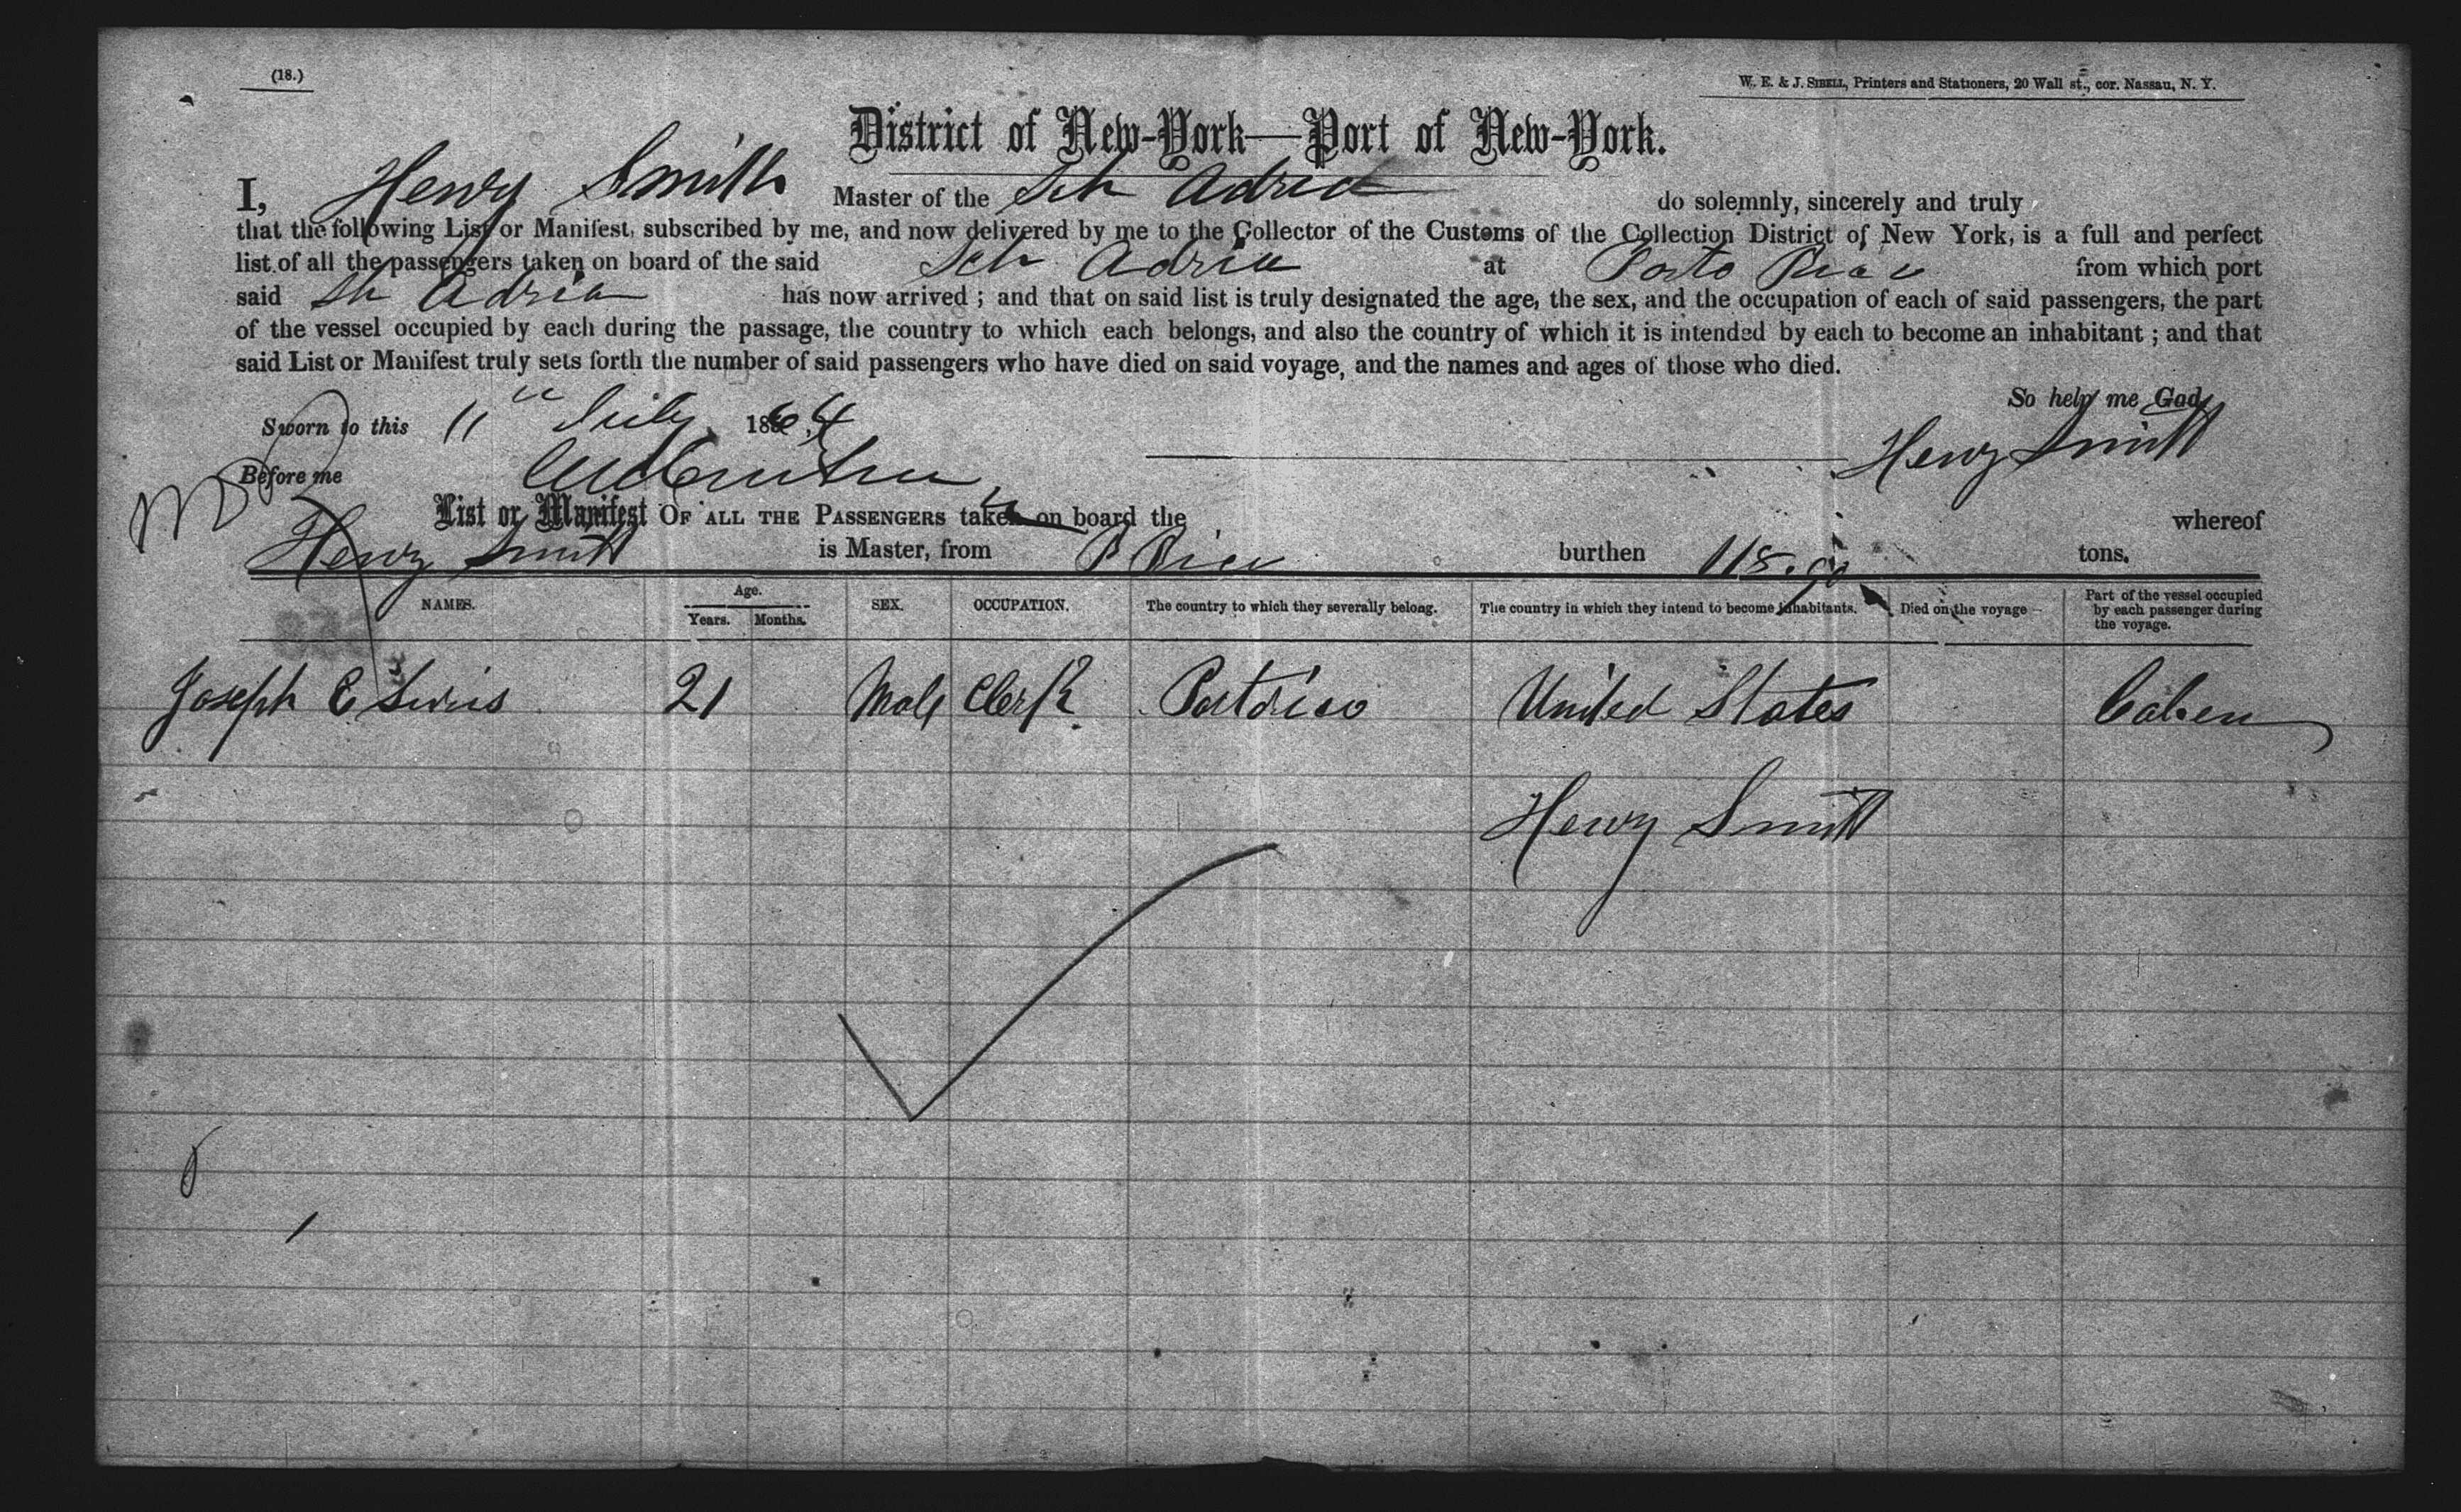 (18.)
W. E. & J. SIBELL, Printers and Stationers, 20 Wall st., cor. Nassau, N. Y.
District of New-York—Port of New-York.
I, Henry Smith Master of the Sch Adria do solemnly, sincerely and truly
that the following List or Manifest, subscribed by me, and now delivered by me to the Collector of the Customs of the Collection District of New York, is a full and perfect
list of all the passengers taken on board of the said Sch Adria at Porto Rico from which port
said Sch Adria has now arrived ; and that on said list is truly designated the age, the sex, and the occupation of each of said passengers, the part
of the vessel occupied by each during the passage, the country to which each belongs, and also the country of which it is intended by each to become an inhabitant ; and that
said List or Manifest truly sets forth the number of said passengers who have died on said voyage, and the names and ages of those who died.
So help me God,
Sworn to this 11 July 1864
Henry Smith
Before me
List or Manifest OF ALL THE PASSENGERS taken on board the whereof
Henry Smith is Master, from P Rico burthen 118.90 tons.
NAMES. Age. Years. Months. SEX. OCCUPATION. The country to which they severally belong. The country in which they intend to become inhabitants. Died on the voyage Part of the vessel occupied by each passenger during the voyage.
Joseph E 21 Male Clerk Portorico United States Caben
Henry Smith